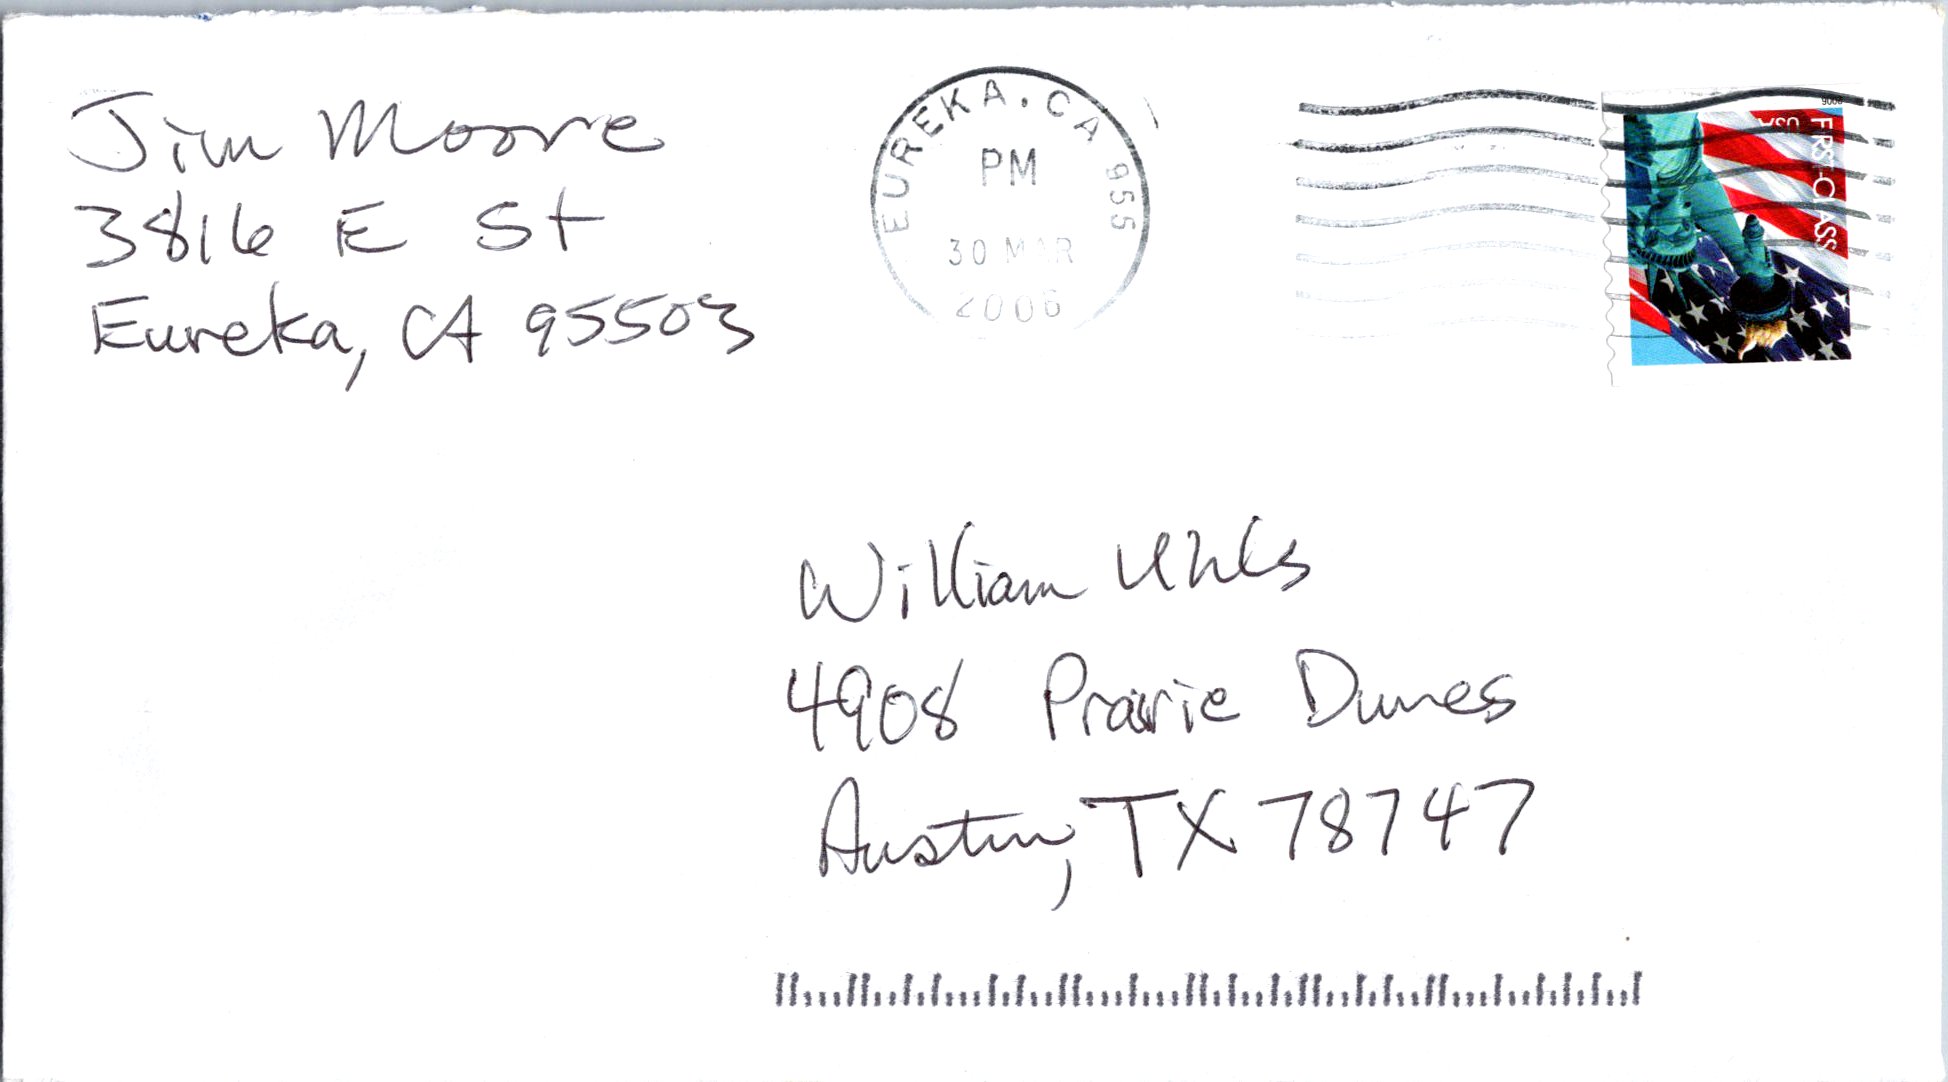 Jim Moore
3816 E St
Eureka, CA 95503
EUREKA, CA 955
PM
30 MAR
2006
FIRST-CLASS
USA
2006
William Uhls
4908 Prairie Dunes
Austin, TX 78747